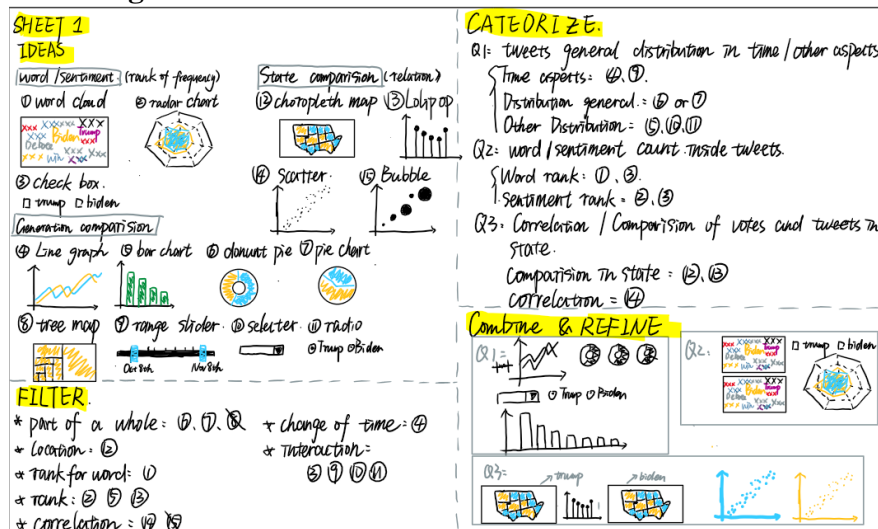 SHEET 1
IDEAS
word/sentiment (rank of frequency)
① word cloud ② radar chart
③ check box.
□ trump □ biden
State comparision (relation)
⑫ choropleth map ⑬ Lolipop
⑭ Scatter. ⑮ Bubble
Generation comparision
④ Line graph ⑤ bar chart ⑥ donunt pie ⑦ pie chart
⑧ tree map ⑨ range slider. ⑩ selecter. ⑪ radio
Oct 8th Nov 8th
Trump Biden
FILTER.
* part of a whole: ⑥. ⑦. ⑧
* Location: ⑫
* rank for word: ①
* rank: ② ⑤ ⑬
* correlation = ⑭ ⑮
* change of time: ④
* Interaction =
③ ⑨ ⑩ ⑪
CATEORIZE.
Q1= tweets general distribution in time / other aspects
Time aspects: ④, ⑨.
Distribution general: ⑥ or ⑦
Other Distribution = ⑤, ⑩, ⑪
Q2= word / sentiment count inside tweets.
Word rank: ①, ③.
sentiment rank = ②, ③
Q3= Correlation / Comparision of votes and tweets in
state.
Comparision in state = ⑫, ⑬
correlation = ⑭
Combine & REFINE
Q1=
Trump Biden
Q2:
□ trump □ biden
Q3=
trump
biden